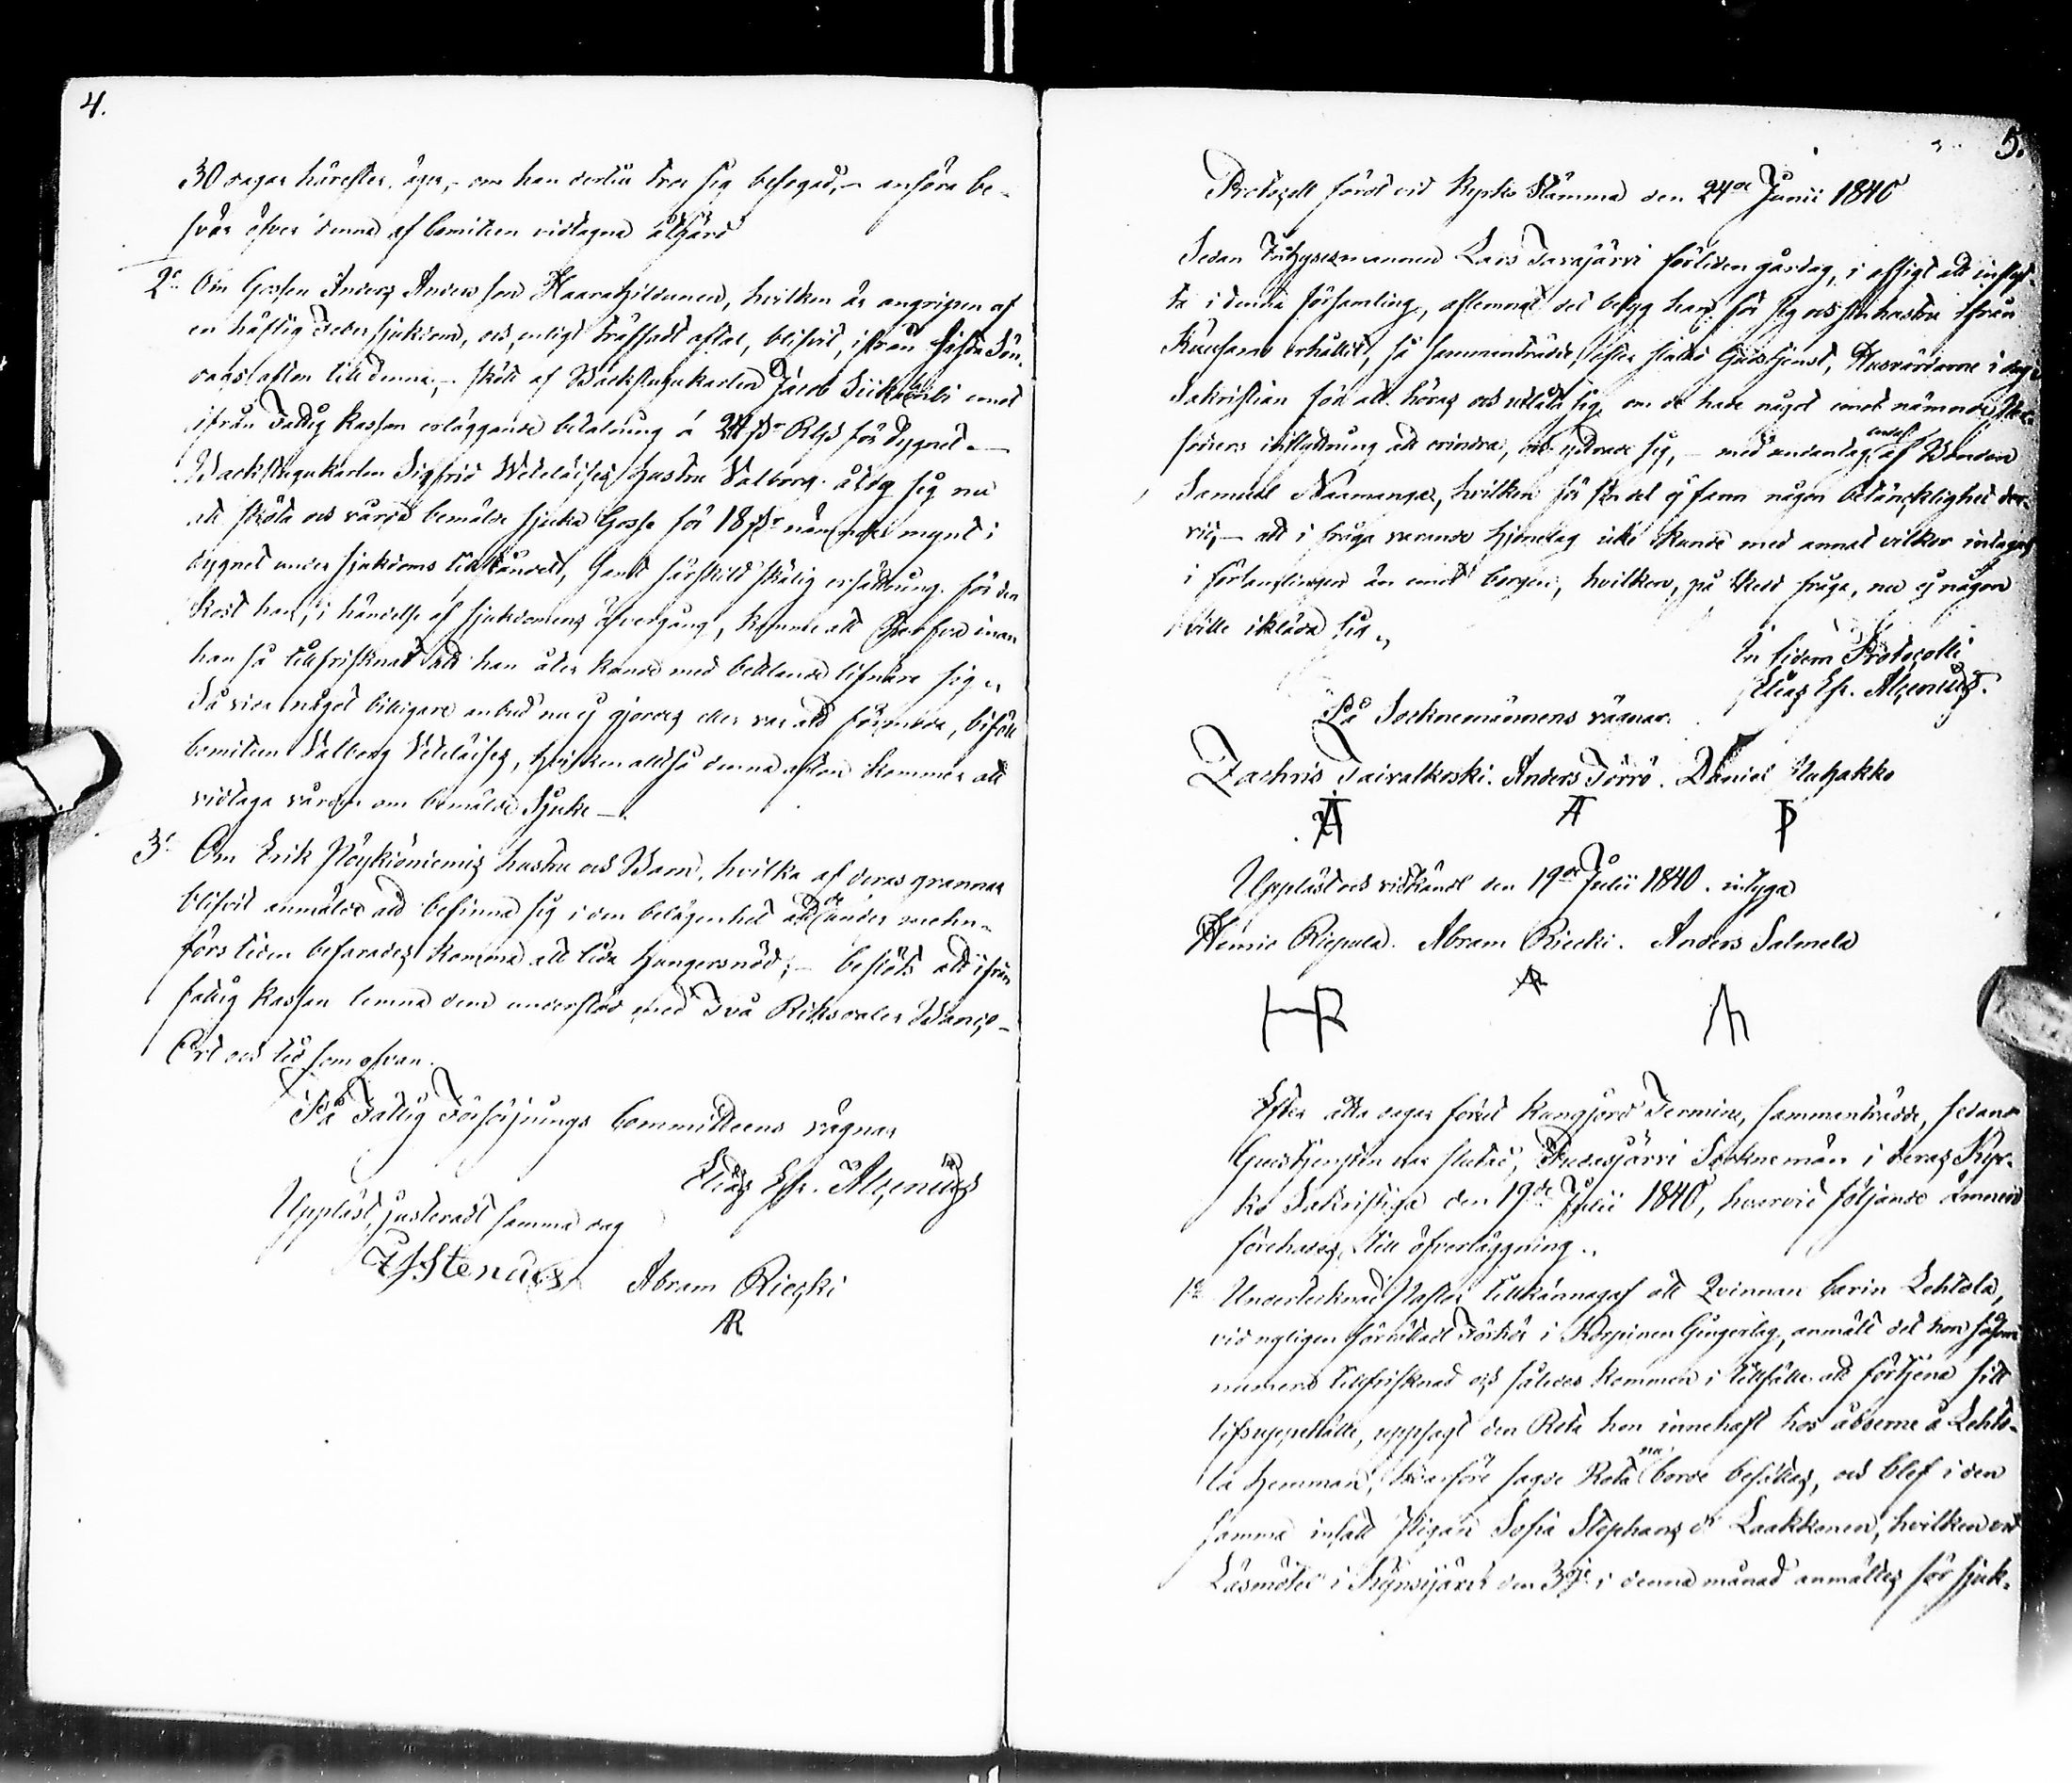 4.
30 dagar härefter, äger, – om han dertill tror sig befogad, – anföra be-
svär öfver denna af Comiteen vidtagna åtgärd
2o Om Gossen Anders Andersson Haarahiltunen, hvilken är angripen af
en häftig Febersjukdom, och, enligt träffadt aftal, blifvit, ifrån sista Sön-
dags afton till denna, – skött af Backstugukarlen Jacob Siika emot
ifrån Fattig Kassan erläggande betalning à 24 sk. Rgs för dygnet. –
Backstugukarlen Sigfrid Weteläises hustru Valborg åtog sig nu
att sköta och vårda bemälde sjuka Gosse för 18 sk. nämndes mynt i
dygnet under sjukdoms tillståndet, samt särskild skälig ersättning för den
Kost han, i händelse af sjukdomens öfvergång, komme att behöfva innan
han så tillfrisknat att han åter kunde med bettlande lifnära sig.,
Då vida något billigare anbud nu ej gjordes eller var att förmoda, biföll
Comiteen Valborg Veteläises, hvilken alltså denna afton kommer att
vidtaga vården om bemälde Sjuke –.
3o Om Erik Pöykiöniemis hustru och Barn, hvilka af deras grannar
blifvit anmälde att befinna sig i den belägenhet att de under
förstiden befarades komma att lida hungersnöd; – beslöts att ifrån
fattig Kassan lemna dem understöd med Två Riksdaler Banco –
Ort och tid som ofvan.
På Fattig Försörjnings Committeens vägnar
Elias Ef. Alcenius
Uppläst, justeradt samma dag
Abram Riecki
AR
5.
Protocoll fördt vid Kyrko Stämma den 24de Junii 1840
Sedan Inhysesmannen Lars Tavajärvi förliden gårdag, i afsigt att inflyt-
ta i denna församling, aflemnat det betyg han för sig och sin hustru ifrån
Kuusamo erhållit, så sammanträdde, efter slutad Gudstjenst, Husvärdarne i dag i
Sakristian för att höras och utlåta sig, om de hade något emot nämnde
inflyttning att erindra, och yttrade sig, – med undantag endast af Bonden
Samuel Naumanga, hvilken för sin del ej fann någon betänklighet der-
vid, – att i fråga varande hjonelag icke kunde med annat vilkor intagas
i församlingen än emot borgen, hvilken, på skedd fråga, nu ej någon
ville ikläda sig.,
In fidem Protocolli
Elias Ef. Alcenius.
På Socknemännens vägnar.
Zachris Taivalkoski. Anders Törrö. Daniel Puhakko
Uppläst och vidkändt den 19de Julii 1840. intyga
Henric Riepula. Abram Riecki. Anders Salmela
HR AR
Efter åtta dagar förut kungjord Termin, sammanträdde, sedan
Gudstjensten var slutad, Pudasjärvi Sockne män i deras Kyr-
ko Sakristija den 19de Julii 1840, hvarvid följande ämnen
förehades till öfverläggning.,
1o Undertecknad Pastor tillkännagaf att Qvinnan Carin Lehtola,
vid nyligen förrättadt Förhör i Korpinen Gingerlag, anmält det hon såsom
numera tillfrisknad och således kommen i tillfälle att förtjena sitt
lifsuppehälle, uppsagt den Rota hon innehaft hos åboerne å Lehto-
la hemman, hvarföre sagde Rota nu borde besättas, och blef i den
samma insatt Pigan Sofia Stephans dr Laakkonen, hvilken vid
Läsmötet i den 3dje i denna månad anmältes för sjuk-